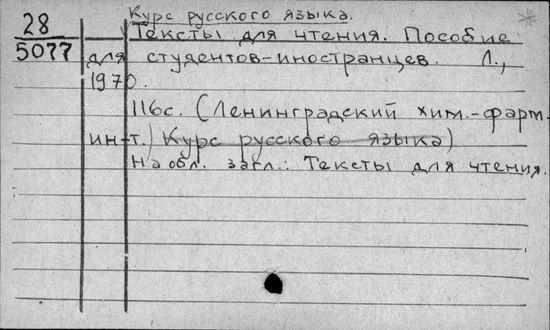 28
5077
Курс русского языка.
Тексты для чтения. Пособие
для студентов-иностранцев. Л.,
1970.
116с. (Ленинградский хим.-фарм.
ин-т. Курс русского языка)
На обл. загл.: Тексты для чтения.